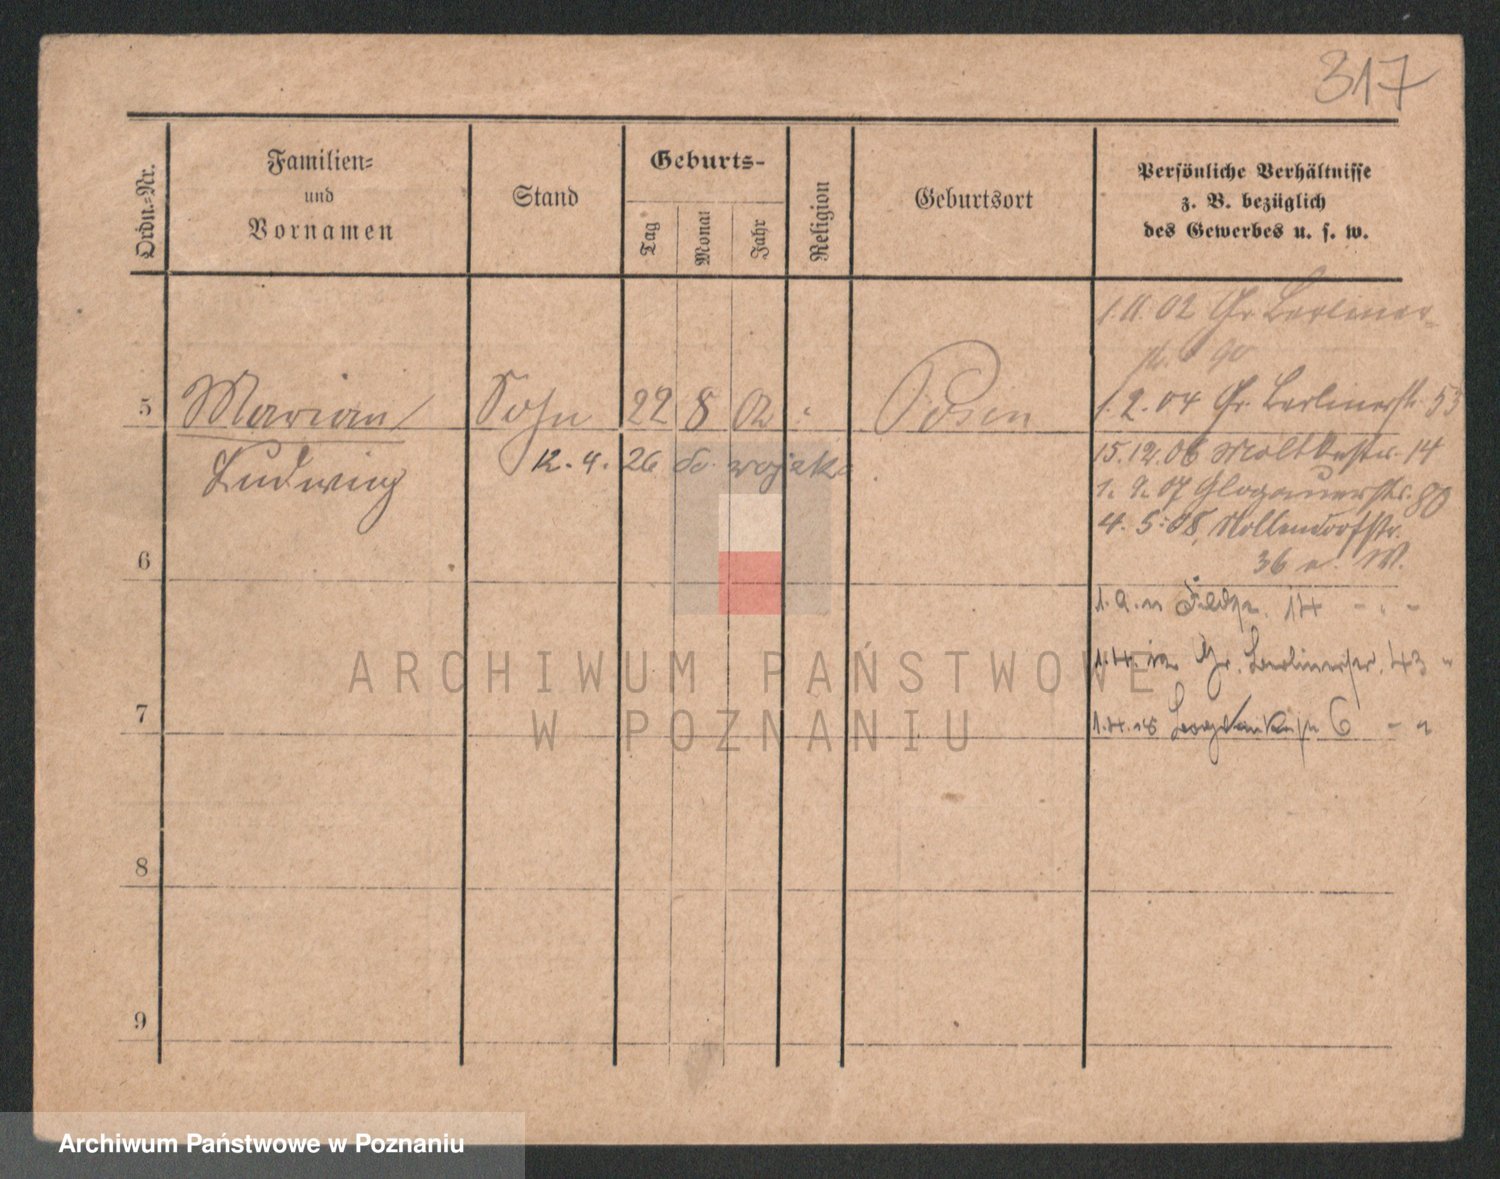 317
Ordn.-Nr.
Familien-
und
Vornamen
Stand
Geburts-
Tag
Monat
Jahr
Religion
Geburtsort
Persönliche Verhältnisse
z. B. bezüglich
des Gewerbes u. s. w.
1. 11. 02 Gr. Berliner-
str. 90
5 Marian Sohn 22 8 02 Posen
1. 2. 04 Gr. Berlinerstr. 53
Ludwig
12. 4. 26 do wojska
15. 12. 06 Moltkestr. 14
1. 9. 07 Glogauerstr. 80
4. 5. 08 Nollendorfstr.
36 W.
6
14
Gr. Berlinerstr. 43
7
6
8
9
ARCHIWUM PAŃSTWOWE
W POZNANIU
Archiwum Państwowe w Poznaniu